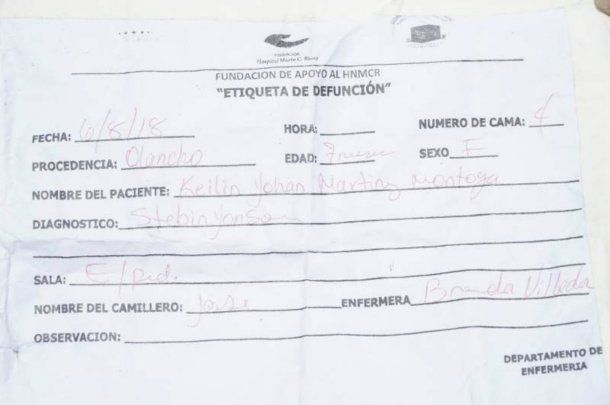 FUNDACIÓN
Hospital Mario C. Rivas
FUNDACION DE APOYO AL HNMCR
"ETIQUETA DE DEFUNCIÓN"
FECHA: 6/8/18 HORA: NUMERO DE CAMA:
PROCEDENCIA: Olancho EDAD: 7 SEXO F
NOMBRE DEL PACIENTE: Keilin Johan Martinz Montoya
DIAGNOSTICO:
SALA: E/ped.
NOMBRE DEL CAMILLERO: Jose ENFERMERA Brenda Villeda
OBSERVACION:
DEPARTAMENTO DE
ENFERMERIA